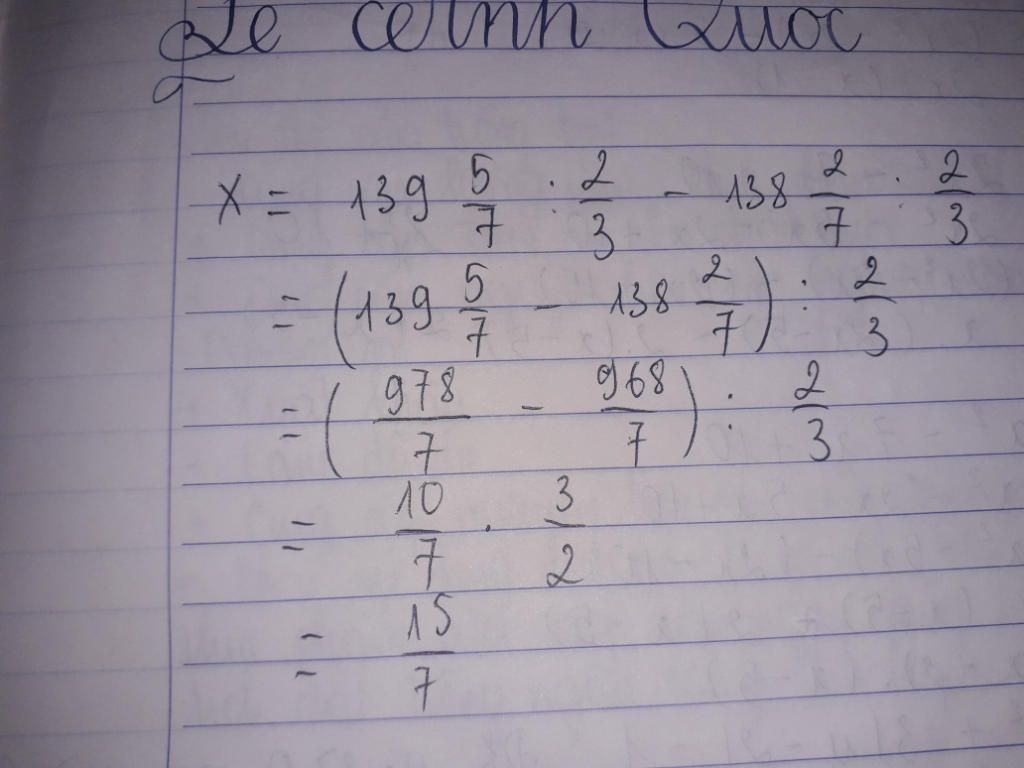 Quoc
X = 139 5/7 : 2/3 - 138 2/7 : 2/3
= (139 5/7 - 138 2/7) : 2/3
= (978/7 - 968/7) : 2/3
= 10/7 . 3/2
= 15/7